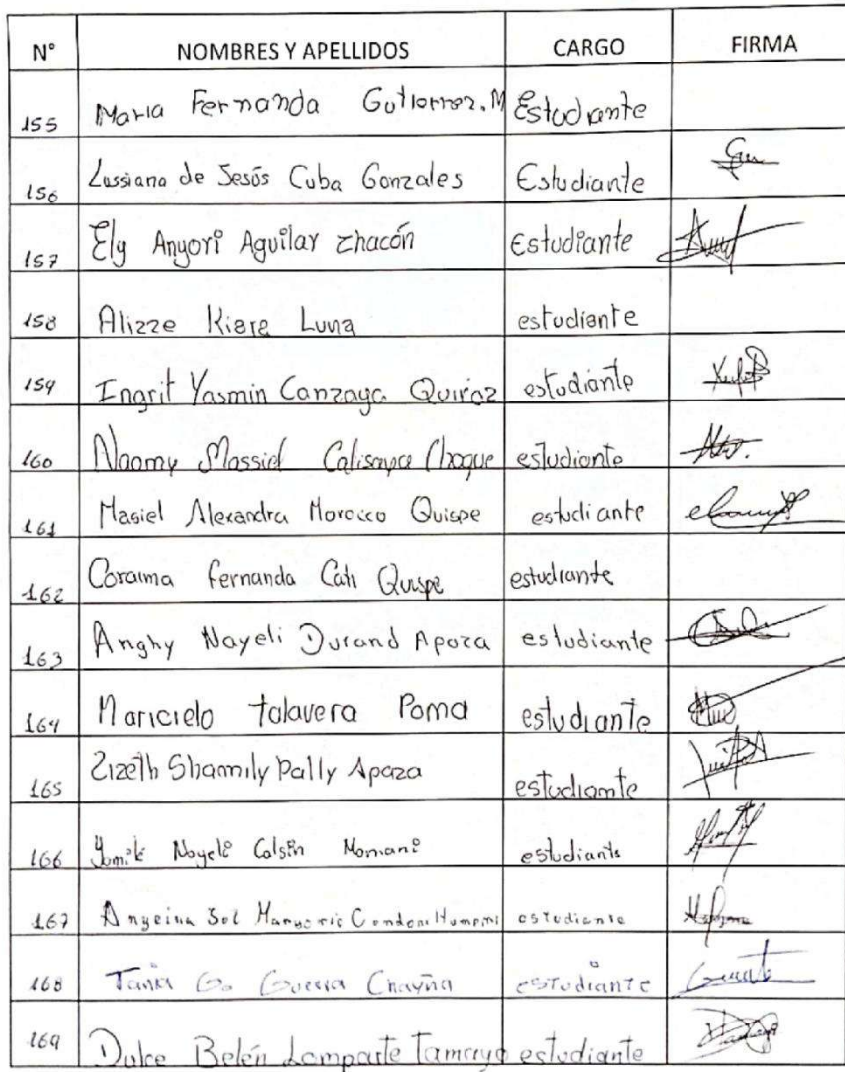 N° NOMBRES Y APELLIDOS CARGO FIRMA
155 Maria Fernanda Gutierrez. M Estudiante
156 Lussiana de Jesús Cuba Gonzales Estudiante
157 Ely Anyori Aguilar Chacón Estudiante
158 Alizze Kiara Luna estudiante
159 Ingrit Yasmin Canzaya Quiroz estudiante
160 Naomy Massiel Calisaya Choque estudiante
161 Masiel Alexandra Morocco Quispe estudiante
162 Coraima fernanda Cati Quispe estudiante
163 Anghy Nayeli Durand Apaza estudiante
164 Maricielo talavera Poma estudiante
165 Lizeth Shamily Pally Apaza estudiante
166 Nayeli Colsin Mamani estudiante
167 Sol Condori estudiante
168 Tania G. Guerra Chayña estudiante
169 Dulce Belén Lomparte Tamayo estudiante